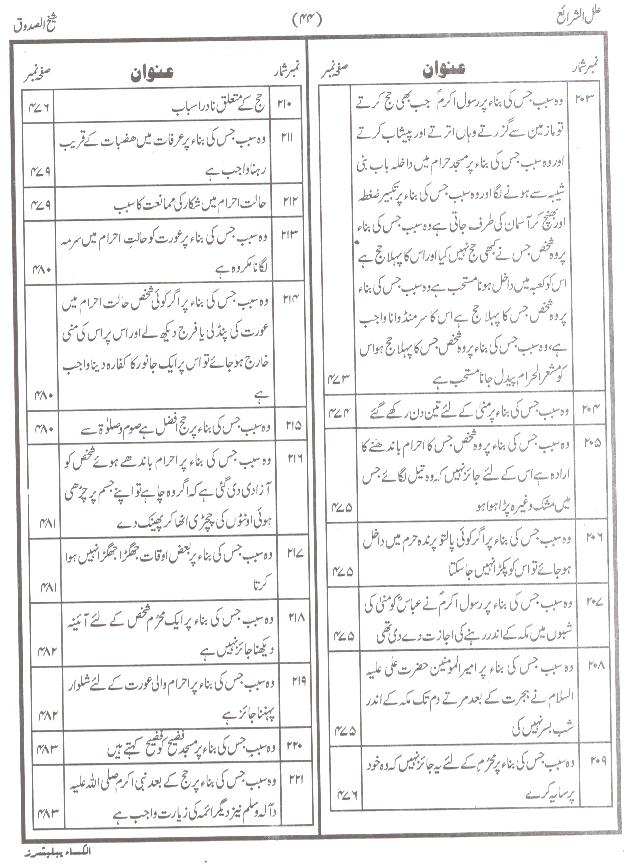 علل الشرائع
(۴۴)
شیخ الصدوق
نمبر شمار
عنوان
صفحہ نمبر
۲۰۳
وہ سبب جس کی بناء پر رسول اکرمؐ جب بھی حج کرتے
تو مازمین سے گزرتے وہاں اترتے اور پیشاب کرتے
اور وہ سبب جس کی بناء پر مسجد حرام میں داخلہ باب بنی
شیبہ سے ہونے لگا اور وہ سبب جس کی بناء پر تکبیر ضغطہ
اور بھینچ کر آسمان کی طرف جاتی ہے وہ سبب جس کی بناء
پر وہ شخص جس نے کبھی حج نہیں کیا اور اس کا پہلا حج ہے
اس کو کعبہ میں داخل ہونا مستحب ہے وہ سبب جس کی بناء
پر وہ شخص جس کا پہلا حج ہے اس کا سر منڈوانا واجب
ہے، وہ سبب جس کی بناء پر وہ شخص جس کا پہلا حج ہو اس
کو مشعر الحرام پیدل جانا مستحب ہے
۴۷۳
۲۰۴
وہ سبب جس کی بناء پر منیٰ کے لئے تین دن رکھے گئے
۴۷۴
۲۰۵
وہ سبب جس کی بناء پر وہ شخص جس کا احرام باندھنے کا
ارادہ ہے اس کے لئے جائز نہیں کہ وہ تیل لگائے جس
میں مشک وغیرہ پڑا ہوا ہو
۴۷۵
۲۰۶
وہ سبب جس کی بناء پر اگر کوئی پالتو پرندہ حرم میں داخل
ہو جائے تو اس کو پکڑا نہیں جا سکتا
۴۷۵
۲۰۷
وہ سبب جس کی بناء پر رسول اکرمؐ نے عباسؓ کو منیٰ کی
شبوں میں مکہ کے اندر رہنے کی اجازت دے دی تھی
۴۷۵
۲۰۸
وہ سبب جس کی بناء پر امیر المومنین حضرت علی علیہ
السلام نے ہجرت کے بعد مرتے دم تک مکہ کے اندر
شب بسر نہیں کی
۴۷۵
۲۰۹
وہ سبب جس کی بناء پر محرم کے لئے یہ جائز نہیں کہ وہ خود
پر سایہ کرے
۴۷۶
نمبر شمار
عنوان
صفحہ نمبر
۲۱۰
حج کے متعلق نادر اسباب
۴۷۶
۲۱۱
وہ سبب جس کی بناء پر عرفات میں ھضبات کے قریب
رہنا واجب ہے
۴۷۹
۲۱۲
حالت احرام میں شکار کی ممانعت کا سبب
۴۷۹
۲۱۳
وہ سبب جس کی بناء پر عورت کو حالت احرام میں سرمہ
لگانا مکروہ ہے
۴۸۰
۲۱۴
وہ سبب جس کی بناء پر اگر کوئی شخص حالت احرام میں
عورت کی پنڈلی یا فرج دیکھ لے اور اس پر اس کی منی
خارج ہو جائے تو اس پر ایک جانور کا کفارہ دینا واجب
ہے
۴۸۰
۲۱۵
وہ سبب جس کی بناء پر حج افضل ہے صوم و صلوٰۃ سے
۴۸۰
۲۱۶
وہ سبب جس کی بناء پر احرام باندھے ہوئے شخص کو
آزادی دی گئی ہے کہ اگر وہ چاہے تو اپنے جسم پر چڑھی
ہوئی اونٹوں کی چچڑی اٹھا کر پھینک دے
۴۸۱
۲۱۷
وہ سبب جس کی بناء پر بعض اوقات جھگڑا جھگڑا نہیں ہوا
کرتا
۴۸۱
۲۱۸
وہ سبب جس کی بناء پر ایک محرم شخص کے لئے آئینہ
دیکھنا جائز نہیں ہے
۴۸۲
۲۱۹
وہ سبب جس کی بناء پر احرام والی عورت کے لئے شلوار
پہننا جائز ہے
۴۸۲
۲۲۰
وہ سبب جس کی بناء پر مسجد فضیح کو فضیح کہتے ہیں
۴۸۳
۲۲۱
وہ سبب جس کی بناء پر حج کے بعد نبی اکرم صلی اللہ علیہ
وآلہ وسلم نیز دیگر ائمہ کی زیارت واجب ہے
۴۸۳
الکساء پبلیشرز